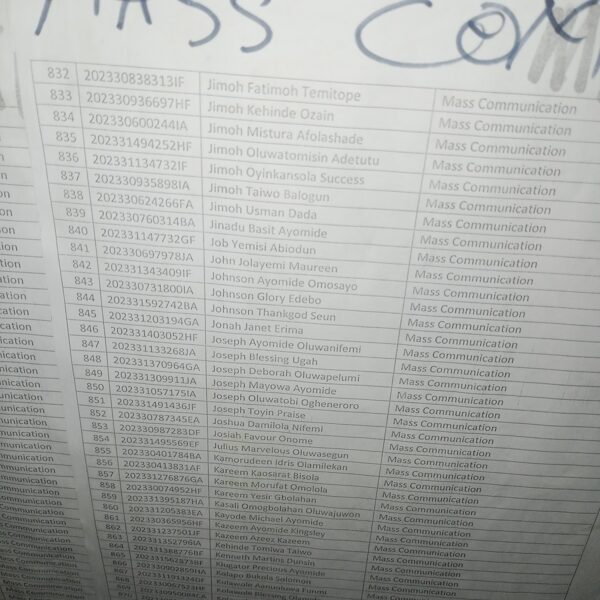 MASS COM
832 202330838313IF Jimoh Fatimoh Temitope Mass Communication
833 202330936697HF Jimoh Kehinde Ozain Mass Communication
834 202330600244IA Jimoh Mistura Afolashade Mass Communication
835 202331494252HF Jimoh Oluwatomisin Adetutu Mass Communication
836 202331134732IF Jimoh Oyinkansola Success Mass Communication
837 202330935898IA Jimoh Taiwo Balogun Mass Communication
838 202330624266FA Jimoh Usman Dada Mass Communication
839 202330760314BA Jinadu Basit Ayomide Mass Communication
840 202331147732GF Job Yemisi Abiodun Mass Communication
841 202330697978JA John Jolayemi Maureen Mass Communication
842 202331343409IF Johnson Ayomide Omosayo Mass Communication
843 202330731800IA Johnson Glory Edebo Mass Communication
844 202331592742BA Johnson Thankgod Seun Mass Communication
845 202331203194GA Jonah Janet Erima Mass Communication
846 202331403052HF Joseph Ayomide Oluwanifemi Mass Communication
847 202331133268JA Joseph Blessing Ugah Mass Communication
848 202331370964GA Joseph Deborah Oluwapelumi Mass Communication
849 202331309911JA Joseph Mayowa Ayomide Mass Communication
850 202331057175IA Joseph Oluwatobi Ogheneroro Mass Communication
851 202331491436JF Joseph Toyin Praise Mass Communication
852 202330787345EA Joshua Damilola Nifemi Mass Communication
853 202330987283DF Josiah Favour Onome Mass Communication
854 202331495569EF Julius Marvelous Oluwasegun Mass Communication
855 202330401784BA Kamorudeen Idris Olamilekan Mass Communication
856 202330413831AF Kareem Kaosarat Bisola Mass Communication
857 202331276876GA Kareem Morufat Omolola Mass Communication
858 202330074952HF Kareem Yesir Gbolahan Mass Communication
859 202331395187HA Kasali Omogbolahan Oluwajuwon Mass Communication
860 202331205383EA Kayode Michael Ayomide Mass Communication
861 202330365956HF Kazeem Ayomide Kingsley Mass Communication
862 202331237501JF Kazeem Azeez Kazeem Mass Communication
863 202331352796IA Kehinde Tomiwa Taiwo Mass Communication
864 202331388776BF Kenneth Martins Dunsin Mass Communication
865 Klugator Precious Ayomide Mass Communication
866 Kolapo Bukola Solomon Mass Communication
Kolawole Blessing